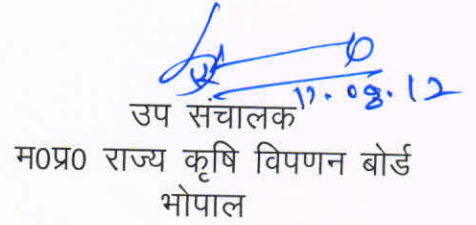 उप संचालक
म0प्र0 राज्य कृषि विपणन बोर्ड
भोपाल